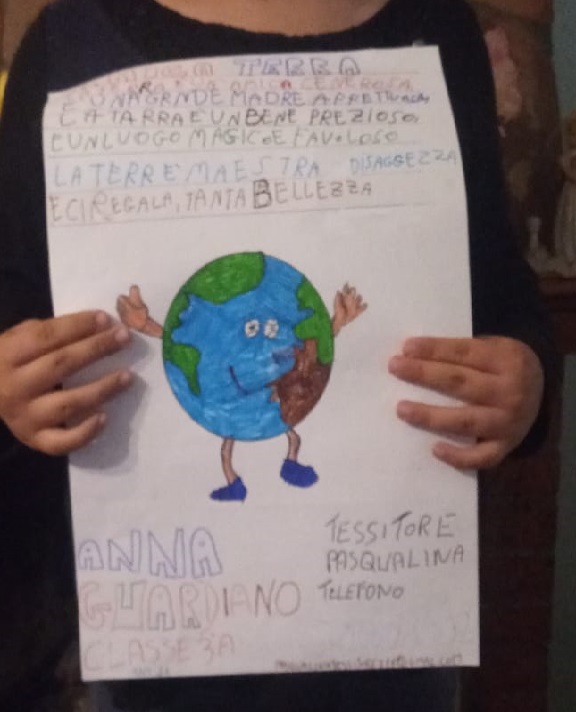 TERRA
AMICA GENEROSA
E UNA GRNDE MADRE
LA TARRA E UN BENE PREZIOSO
E UN LUOGO MAGICO E FAVOLOSO
LA TERRE MAESTRA DISAGGEZZA
E CI REGALA, TANTA BELLEZZA
ANNA
GUARDIANO
CLASSE 3A
TESSITORE
PASQUALINA
TELEFONO